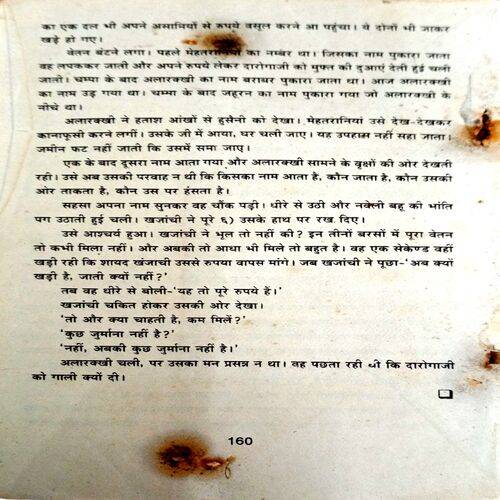 का एक दल भी अपने असामियों से रुपये वसूल करने आ पहुंचा। ये दोनों भी जाकर
खड़े हो गए।
वेतन बंटने लगा। पहले मेहतरानियों का नम्बर था। जिसका नाम पुकारा जाता
वह लपककर जाती और अपने रुपये लेकर दारोगाजी को मुफ्त की दुआएं देती हुई चली
जातो। चम्पा के बाद अलारक्खी का नाम बराबर पुकारा जाता था। आज अलारक्खी
का नाम उड़ गया था। चम्पा के बाद जहूरन का नाम पुकारा गया जो अलारक्खी के
नीचे था।
अलारक्खी ने हताश आंखों से हुसैनी को देखा। मेहतरानियां उसे देख-देखकर
कानाफूसी करने लगीं। उसके जी में आया, घर चली जाए। यह उपहास नहीं सहा जाता।
जमीन फट नहीं जातो कि उसमें समा जाए।
एक के बाद दूसरा नाम आता गया और अलारक्खी सामने के वृक्षों की ओर देखती
रही। उसे अब उसकी परवाह न थी कि किसका नाम आता है, कौन जाता है, कौन उसकी
ओर ताकता है, कौन उस पर हंसता है।
सहसा अपना नाम सुनकर वह चौंक पड़ी। धीरे से उठी और नवेली बहू की भांति
पग उठाती हुई चली। खजांची ने पूरे ६) उसके हाथ पर रख दिए।
उसे आश्चर्य हुआ। खजांची ने भूल तो नहीं की? इन तीनों बरसों में पूरा वेतन
तो कभी मिला नहीं। और अबकी तो आधा भी मिले तो बहुत है। वह एक सेकेण्ड वहीं
खड़ी रही कि शायद खंजाची उससे रुपया वापस मांगे। जब खजांची ने पूछा-'अब क्यों
खड़ी है, जाती क्यों नहीं?'
तब वह धीरे से बोली-'यह तो पूरे रुपये हैं।'
खजांची चकित होकर उसकी ओर देखा।
'तो और क्या चाहती है, कम मिलें?'
'कुछ जुर्माना नहीं है?'
'नहीं, अबकी कुछ जुर्माना नहीं है।'
अलारक्खी चली, पर उसका मन प्रसन्न न था। वह पछता रही थी कि दारोगाजी
को गाली क्यों दी।
160